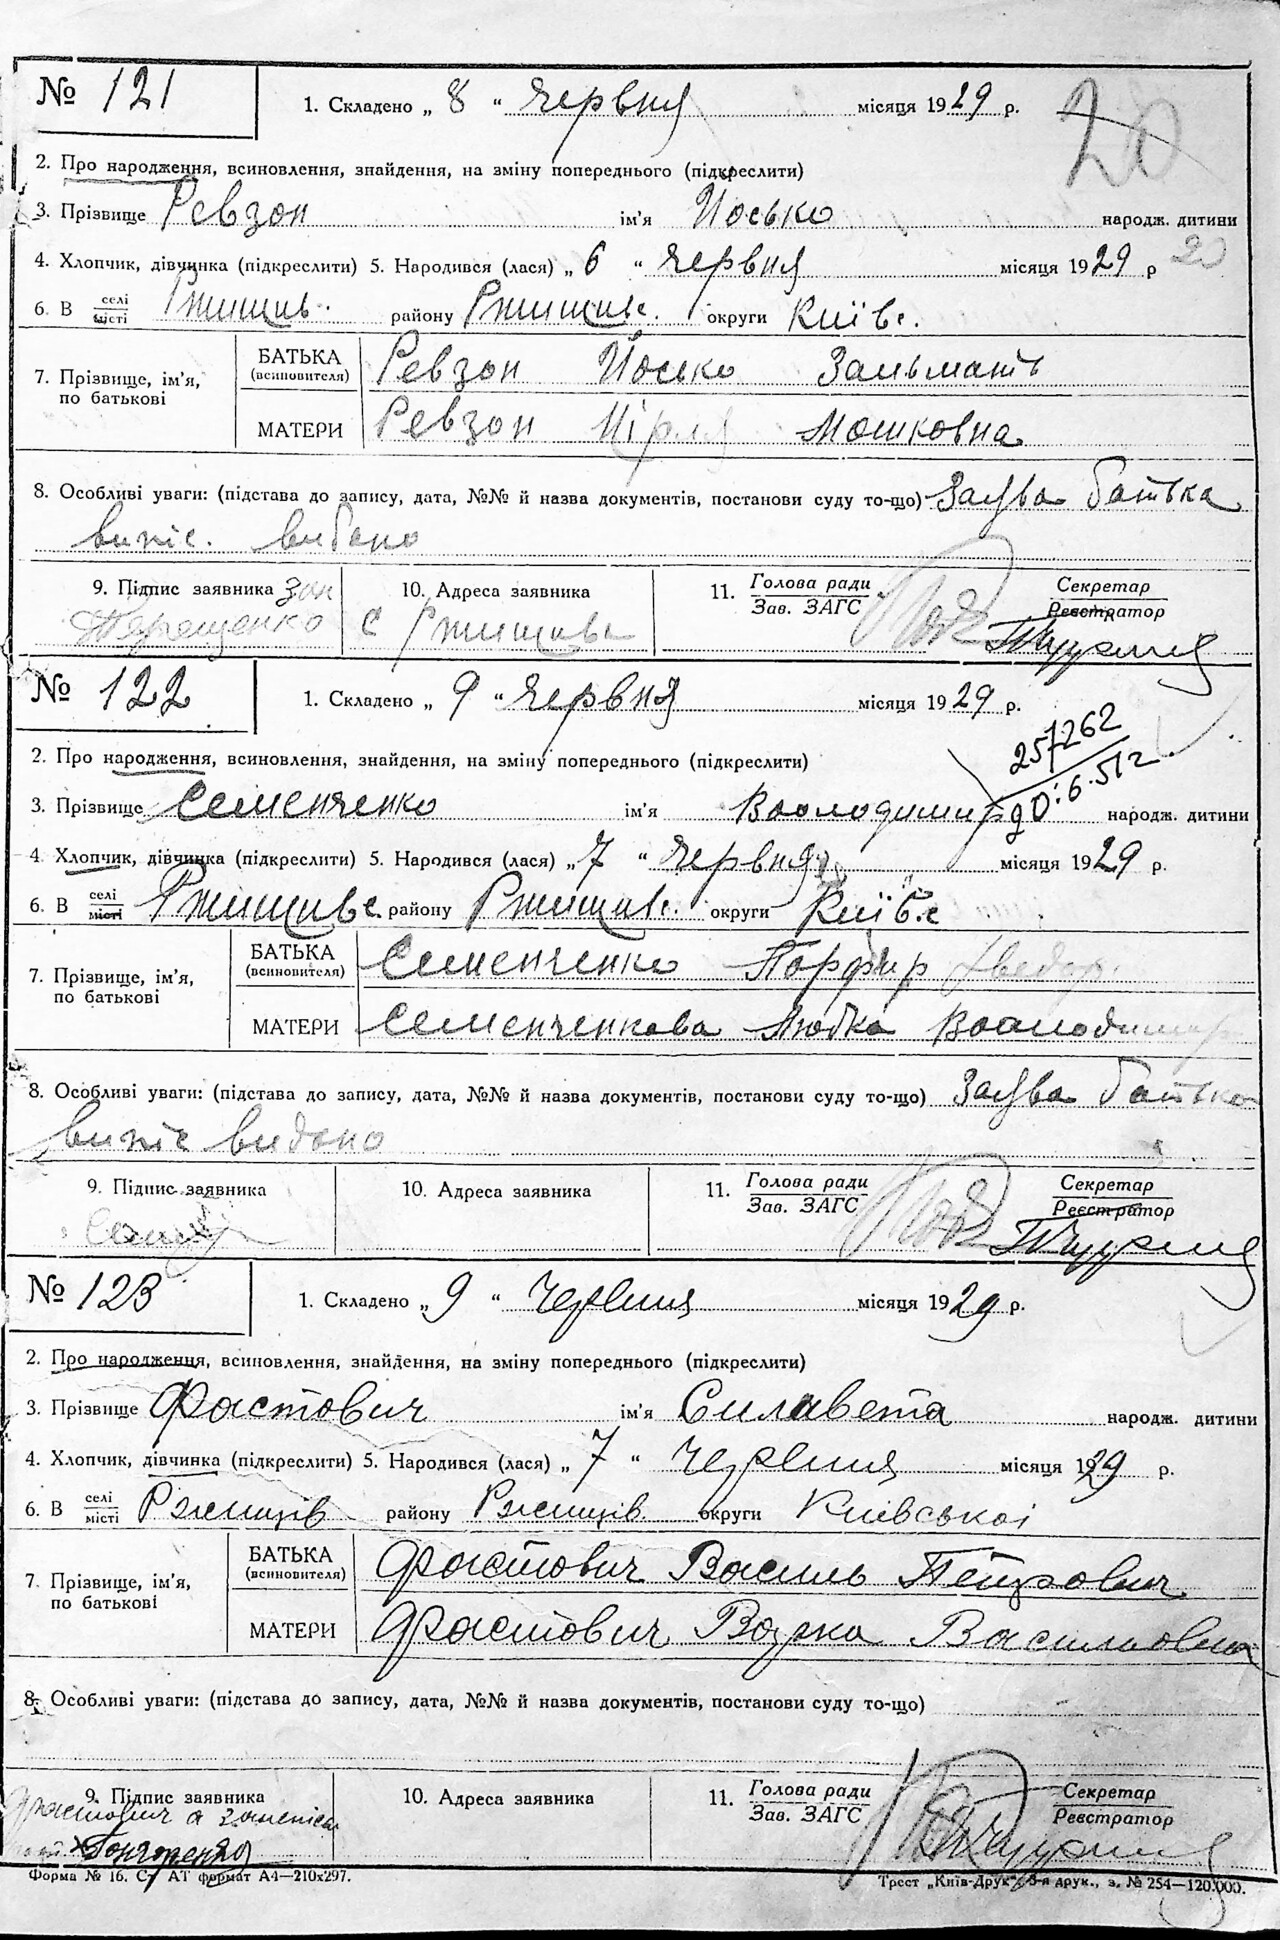 № 121 1. Складено „ 8 “ червня місяця 1929 р. 20
2. Про народження, всиновлення, знайдення, на зміну попереднього (підкреслити)
3. Прізвище Ревзон ім'я Йосько народж. дитини
4. Хлопчик, дівчинка (підкреслити) 5. Народився (лася) „ 6 “ червня місяця 1929 р 20
6. В селі місті Ржищів. району Ржищівс. округи Київс.
7. Прізвище, ім'я, по батькові БАТЬКА (всиновителя) Ревзон Йосько
МАТЕРИ Ревзон Мірля Мошковна
8. Особливі уваги: (підстава до запису, дата, №№ й назва документів, постанови суду то-що) Заява батька
випіс. видано
9. Підпис заявника 10. Адреса заявника 11. Голова ради Зав. ЗАГС Секретар Реєстратор
Терещенко с Ржищів
№ 122 1. Складено „ 9 “ червня місяця 1929 р.
257262
20.6.51г
2. Про народження, всиновлення, знайдення, на зміну попереднього (підкреслити)
3. Прізвище Семенченко ім'я Воолодимир народж. дитини
4. Хлопчик, дівчинка (підкреслити) 5. Народився (лася) „ 7 “ червня місяця 1929 р.
6. В селі місті Ржищівс. району Ржищівс. округи Київ.с
7. Прізвище, ім'я, по батькові БАТЬКА (всиновителя) Семенченко Порфир Хведор.
МАТЕРИ Семенченкова Любка Воолодимир
8. Особливі уваги: (підстава до запису, дата, №№ й назва документів, постанови суду то-що) Заява батька
випіс видано
9. Підпис заявника 10. Адреса заявника 11. Голова ради Зав. ЗАГС Секретар Реєстратор
№ 123 1. Складено „ 9 “ Червня місяця 1929 р.
2. Про народження, всиновлення, знайдення, на зміну попереднього (підкреслити)
3. Прізвище Фастович ім'я Силавета народж. дитини
4. Хлопчик, дівчинка (підкреслити) 5. Народився (лася) „ 7 “ Червня місяця 1929 р.
6. В селі місті Ржищів району Ржищів округи Київської
7. Прізвище, ім'я, по батькові БАТЬКА (всиновителя) Фастович Василь Петрович
МАТЕРИ Фастович Варка Василівна
8. Особливі уваги: (підстава до запису, дата, №№ й назва документів, постанови суду то-що)
9. Підпис заявника 10. Адреса заявника 11. Голова ради Зав. ЗАГС Секретар Реєстратор
Фастович а
Гончаренко
Форма № 16. Ст АТ формат А4—210х297. Трест „Київ-Друк“, 3-я друк., з. № 254—120.000.